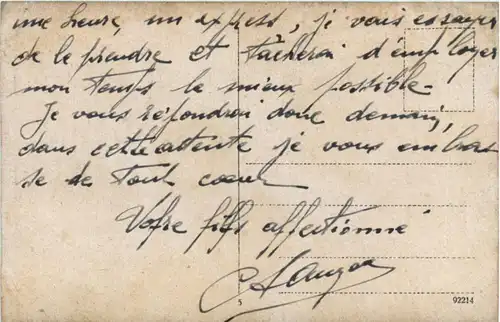 une heure, un express, je vais essayer
de le prendre et tâcherai d'employer
mon temps le mieux possible.
Je vous répondrai donc demain,
dans cette attente je vous embras
se de tout coeur
Votre fils affectionné
5
92214